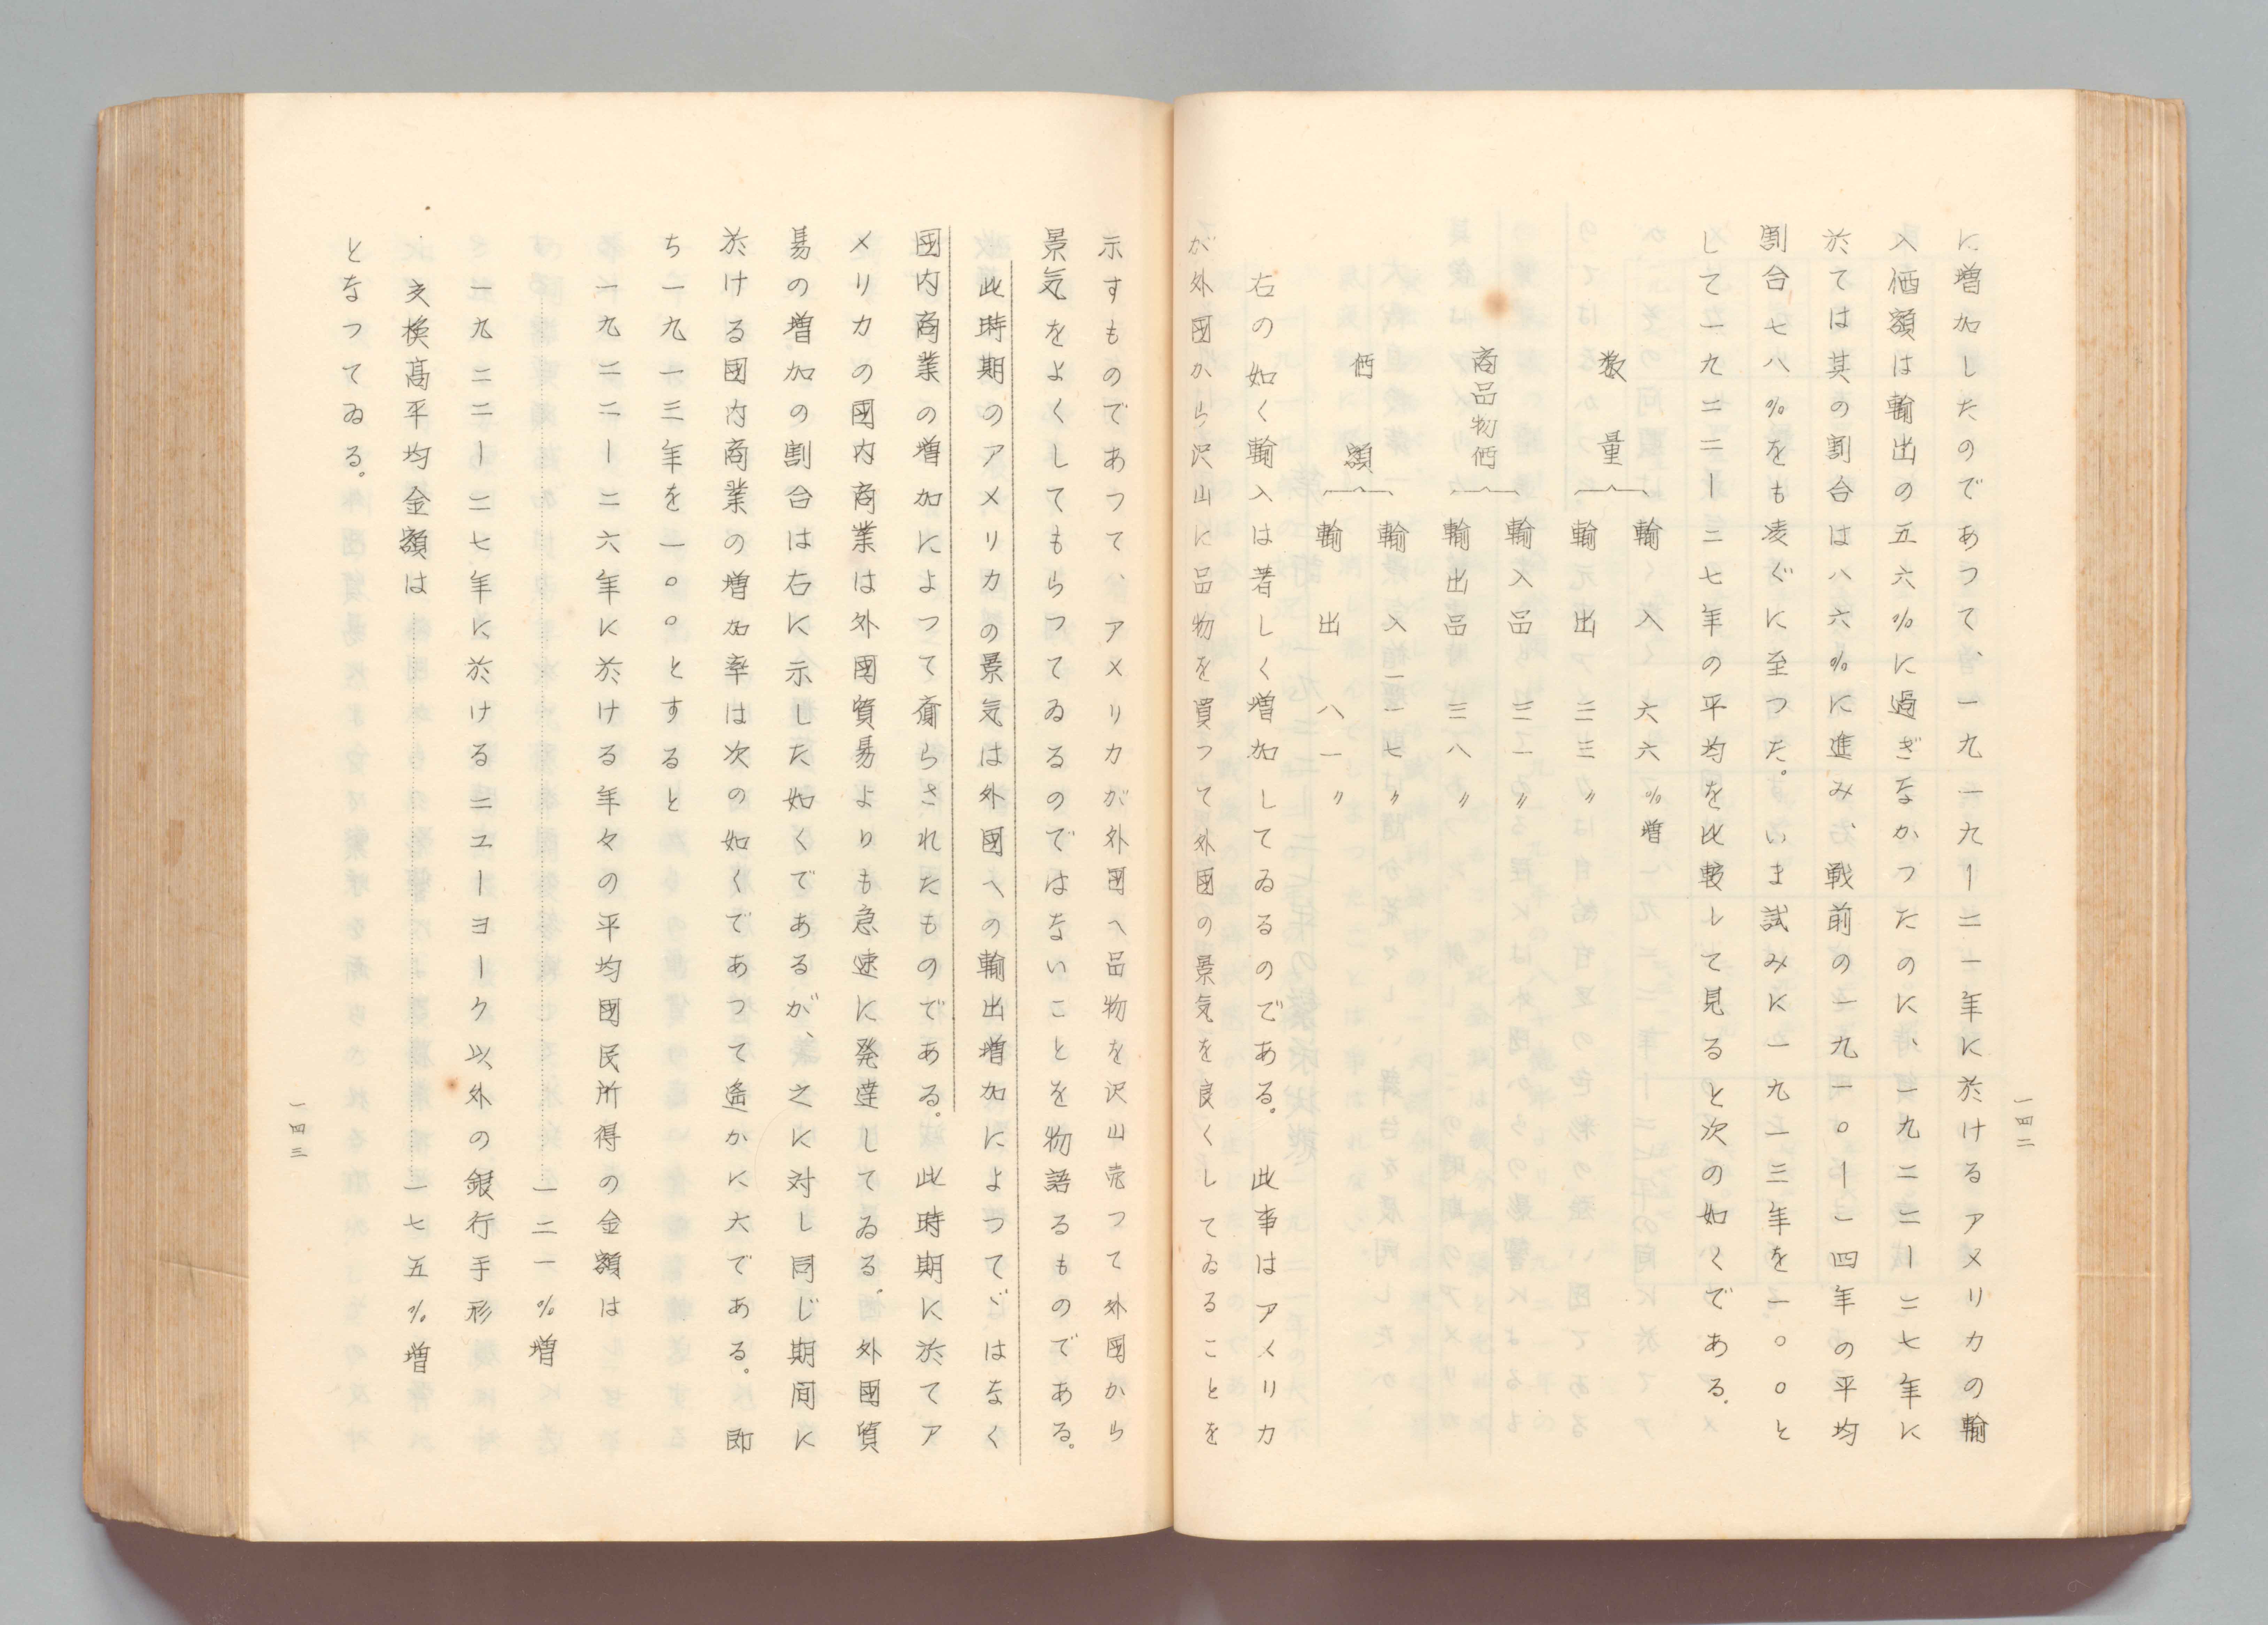 に増加したのであつて、一九一九ー二一年に於けるアメリカの輸
入価額は輸出の五六％に過ぎなかつたのに、一九二二ー二七年に
於ては其の割合は八六％に進み、戦前の一九一〇ー一四年の平均
割合七八％をも凌ぐに至つた。いま試みに一九一三年を一〇〇と
して一九二二ー二七年の平均を比較して見ると次の如くである。
数量
輸入 六六％増
輸出 三三〃
商品物価
輸入品 三一〃
輸出品 三八〃
価額
輸入 一一七〃
輸出 八一〃
右の如く輸入は著しく増加してゐるのである。此事はアメリカ
が外国から沢山に品物を買つて外国の景気を良くしてゐることを
一四二
示すものであつて、アメリカが外国へ品物を沢山売つて外国から
景気をよくしてもらつてゐるのではないことを物語るものである。
此時期のアメリカの景気は外國への輸出増加によつてゞはなく
国内商業の増加によつて齎らされたものである。此時期に於てア
メリカの國内商業は外國貿易よりも急速に発達してゐる。外國貿
易の増加の割合は右に示した如くであるが、之に対し同じ期间に
於ける國内商業の増加率は次の如くであつて遙かに大である。即
ち一九一三年を一〇〇とすると
一九二二ー二六年に於ける年々の平均國民所得の金額は
……………………一二一％増
一九二二ー二七年に於けるニユーヨーク以外の銀行手形
交換高平均金額は……………………一七五％増
となつてゐる。
一四三